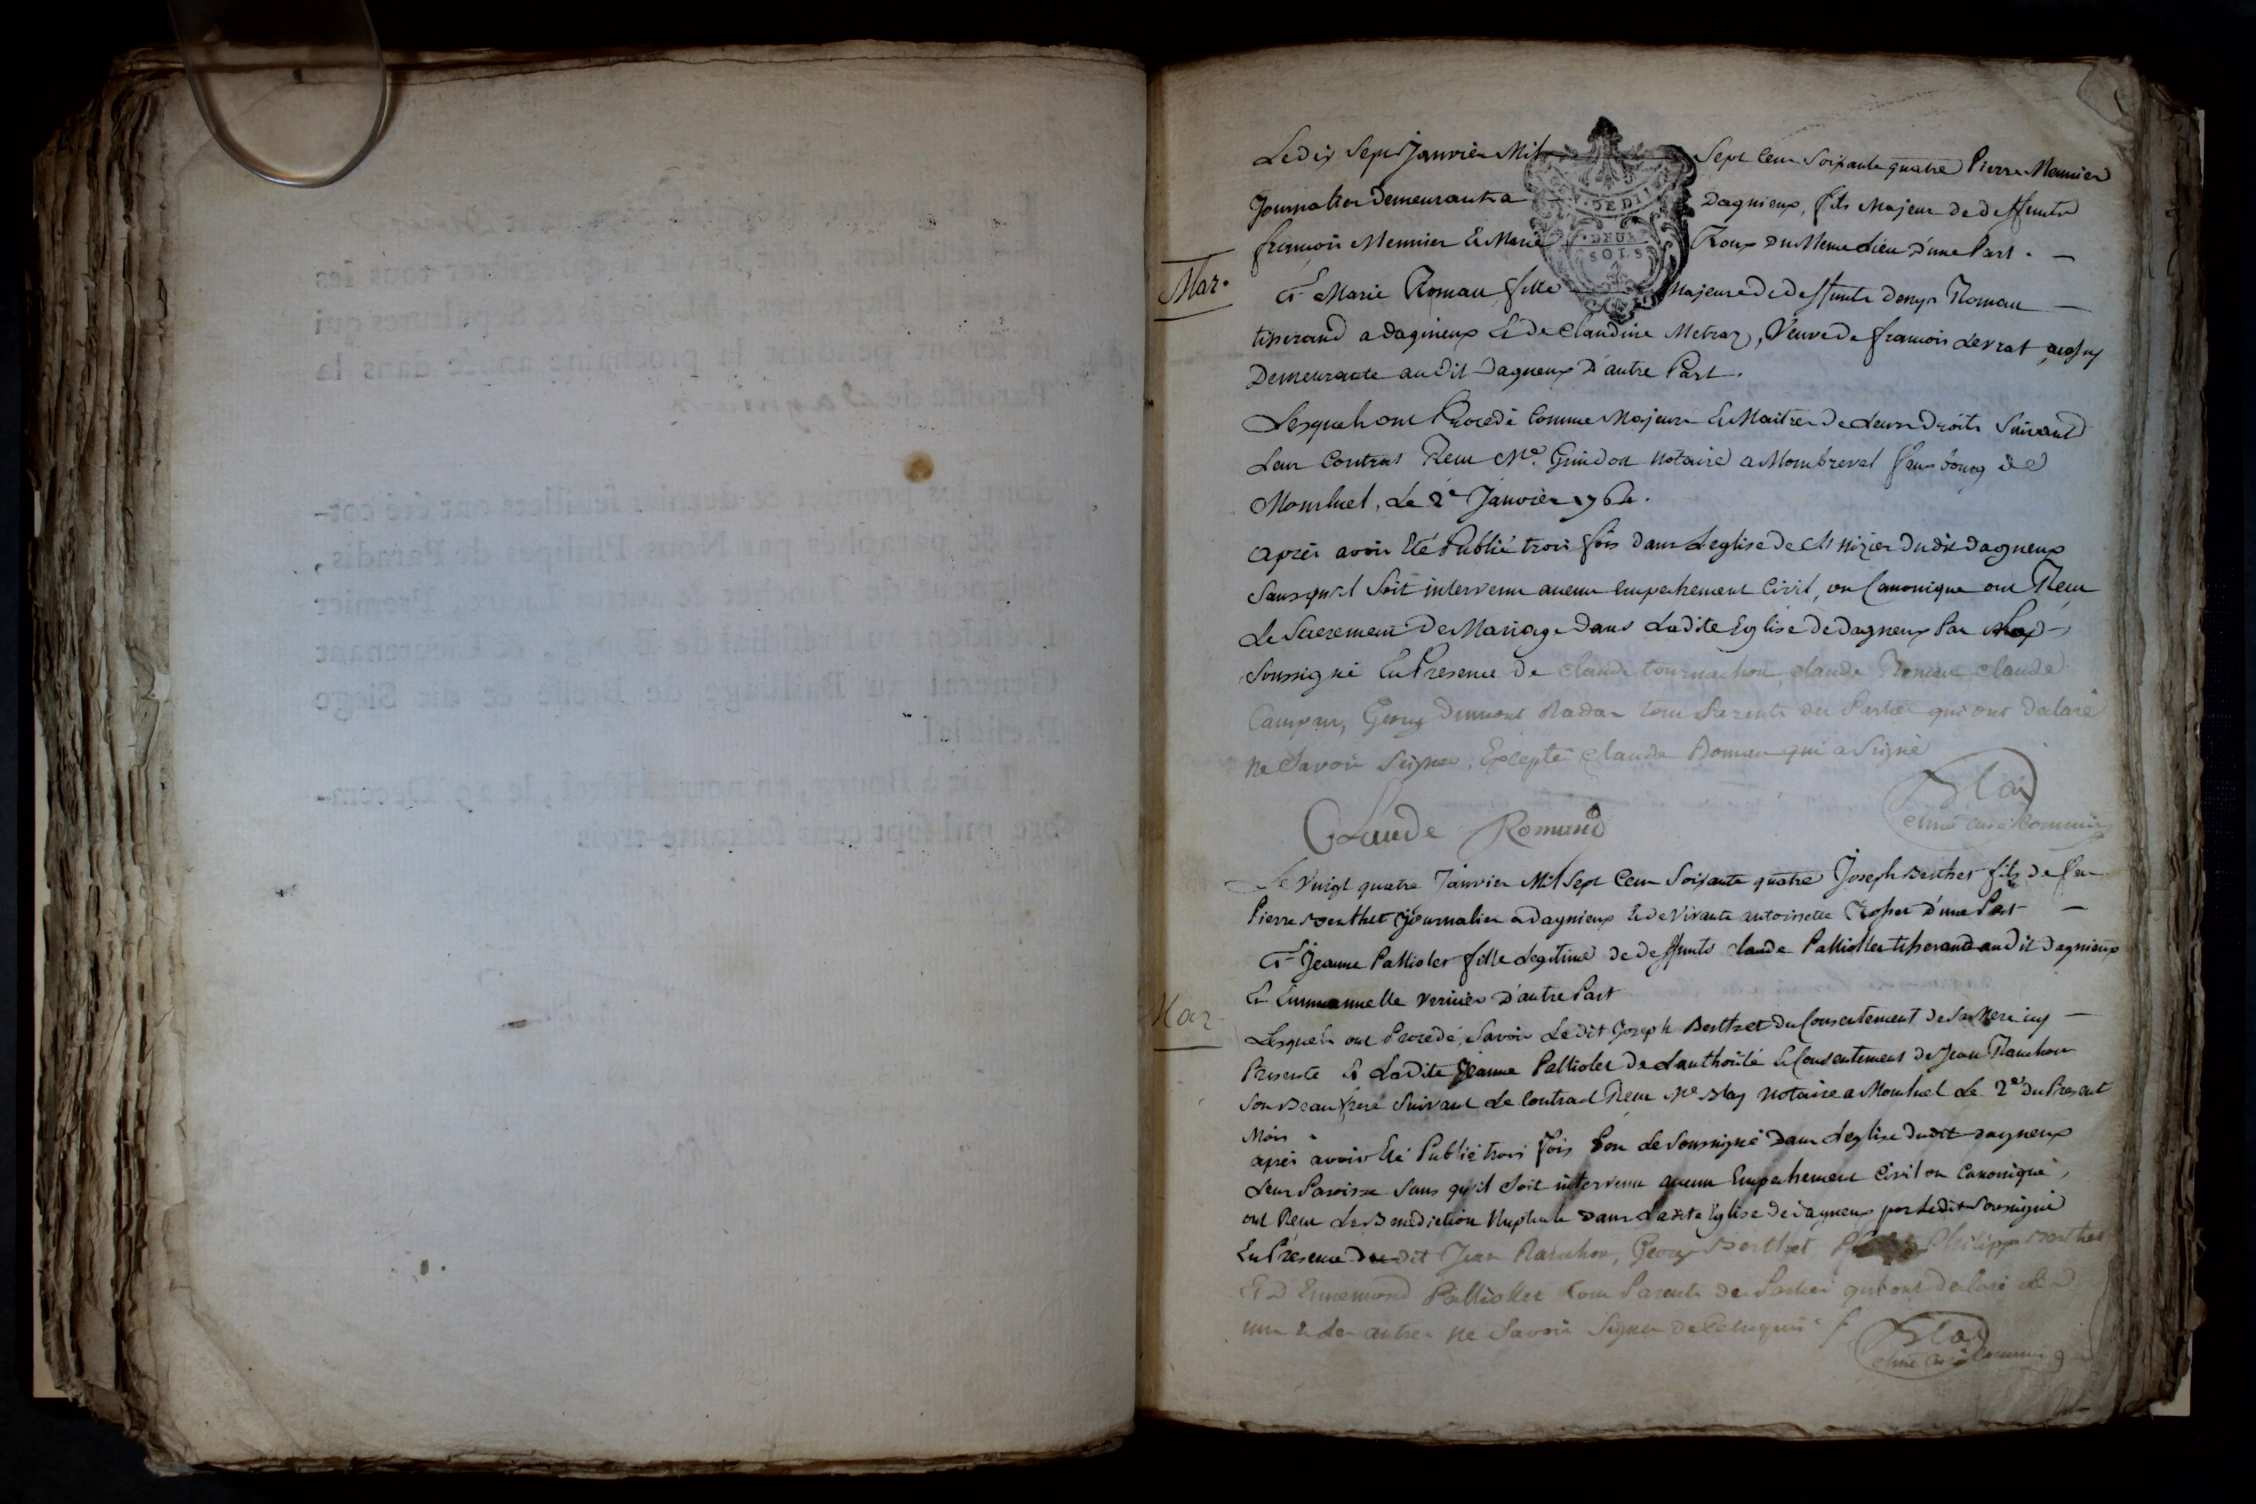 Le dix Sept Janvier Mil Sept Cent Soixante quatre Pierre Meunier
Journalier Demeurant a Dagnieux, fils Majeur de deffunts
françois Meunier & Marie Roux du Meme Lieu d'une Part.
Mar.
Et Marie Roman fille Majeure de deffunts denys Roman
tisserand a dagnieux & de Claudine Metraz, Veuve de francois Levrat
Demeurante au dit Dagneux D'autre Part.
Lesquels ont Procedé Comme Majeurs & Maitres de Leurs Droits Suivant
Leur Contrat Recu Me. Guindon Notaire a Mombrevel faux bourg de
Montluel, Le 2e Janvier 1764.
DE DI
DEUX
SOLS
après avoir Eté Publié trois fois dans L'eglise de St nizier dudit dagneux
Sans qu'il Soit intervenu aucun Empechement Civil, ou Canonique ont Recu
Le Sacrement De Mariage dans Ladite Eglise De Dagneux Par
Soussigné En Presence De Claude tournachon, claude Roman claude
Georg Dumont tous Parents des Parties qui ont Declaré
ne Savoir Signer, Excepté Claude Roman qui a Signé
Claude Romand
Blai
Le Vingt quatre Janvier Mil Sept Cent Soixante quatre Joseph Berthet fils de feu
Pierre Berthet Journalier a Dagnieux & de Vivante antoinette D'une Part
Et Jeanne Palliollet fille Legitime de deffunts claude Palliollet tisserand au Dit Dagnieux
& Emmanuelle Vernier D'autre Part
Mar
Lesquels ont Procedé, Savoir Ledit Joseph Berthet du Consentement de Sa Mere icy
Presente & Ladite Jeanne Palliolet De L'authorité & Consentement de Jean Ranchon
Son Beau frere Suivant Le Contrat Recu Me Blay Notaire a Montluel Le 2e du Present
Mois
après avoir Eté Publié trois fois Par Le Soussigné Dans L'eglise dudit dagneux
Leur Paroisse Sans qu'il Soit intervenu aucun Empechement Civil ou Canonique,
ont Recu La Benediction Nuptiale Dans Ladite Eglise de dagneux par Ledit Soussigné
En Presence Du dit Jean Ranchon, George Berthet Philippe Berthet
Et D'Ennemond Palliollet tous Parents des Parties qui ont declaré Les
uns & Les autres ne Savoir Signer De Ce Requis
Blai